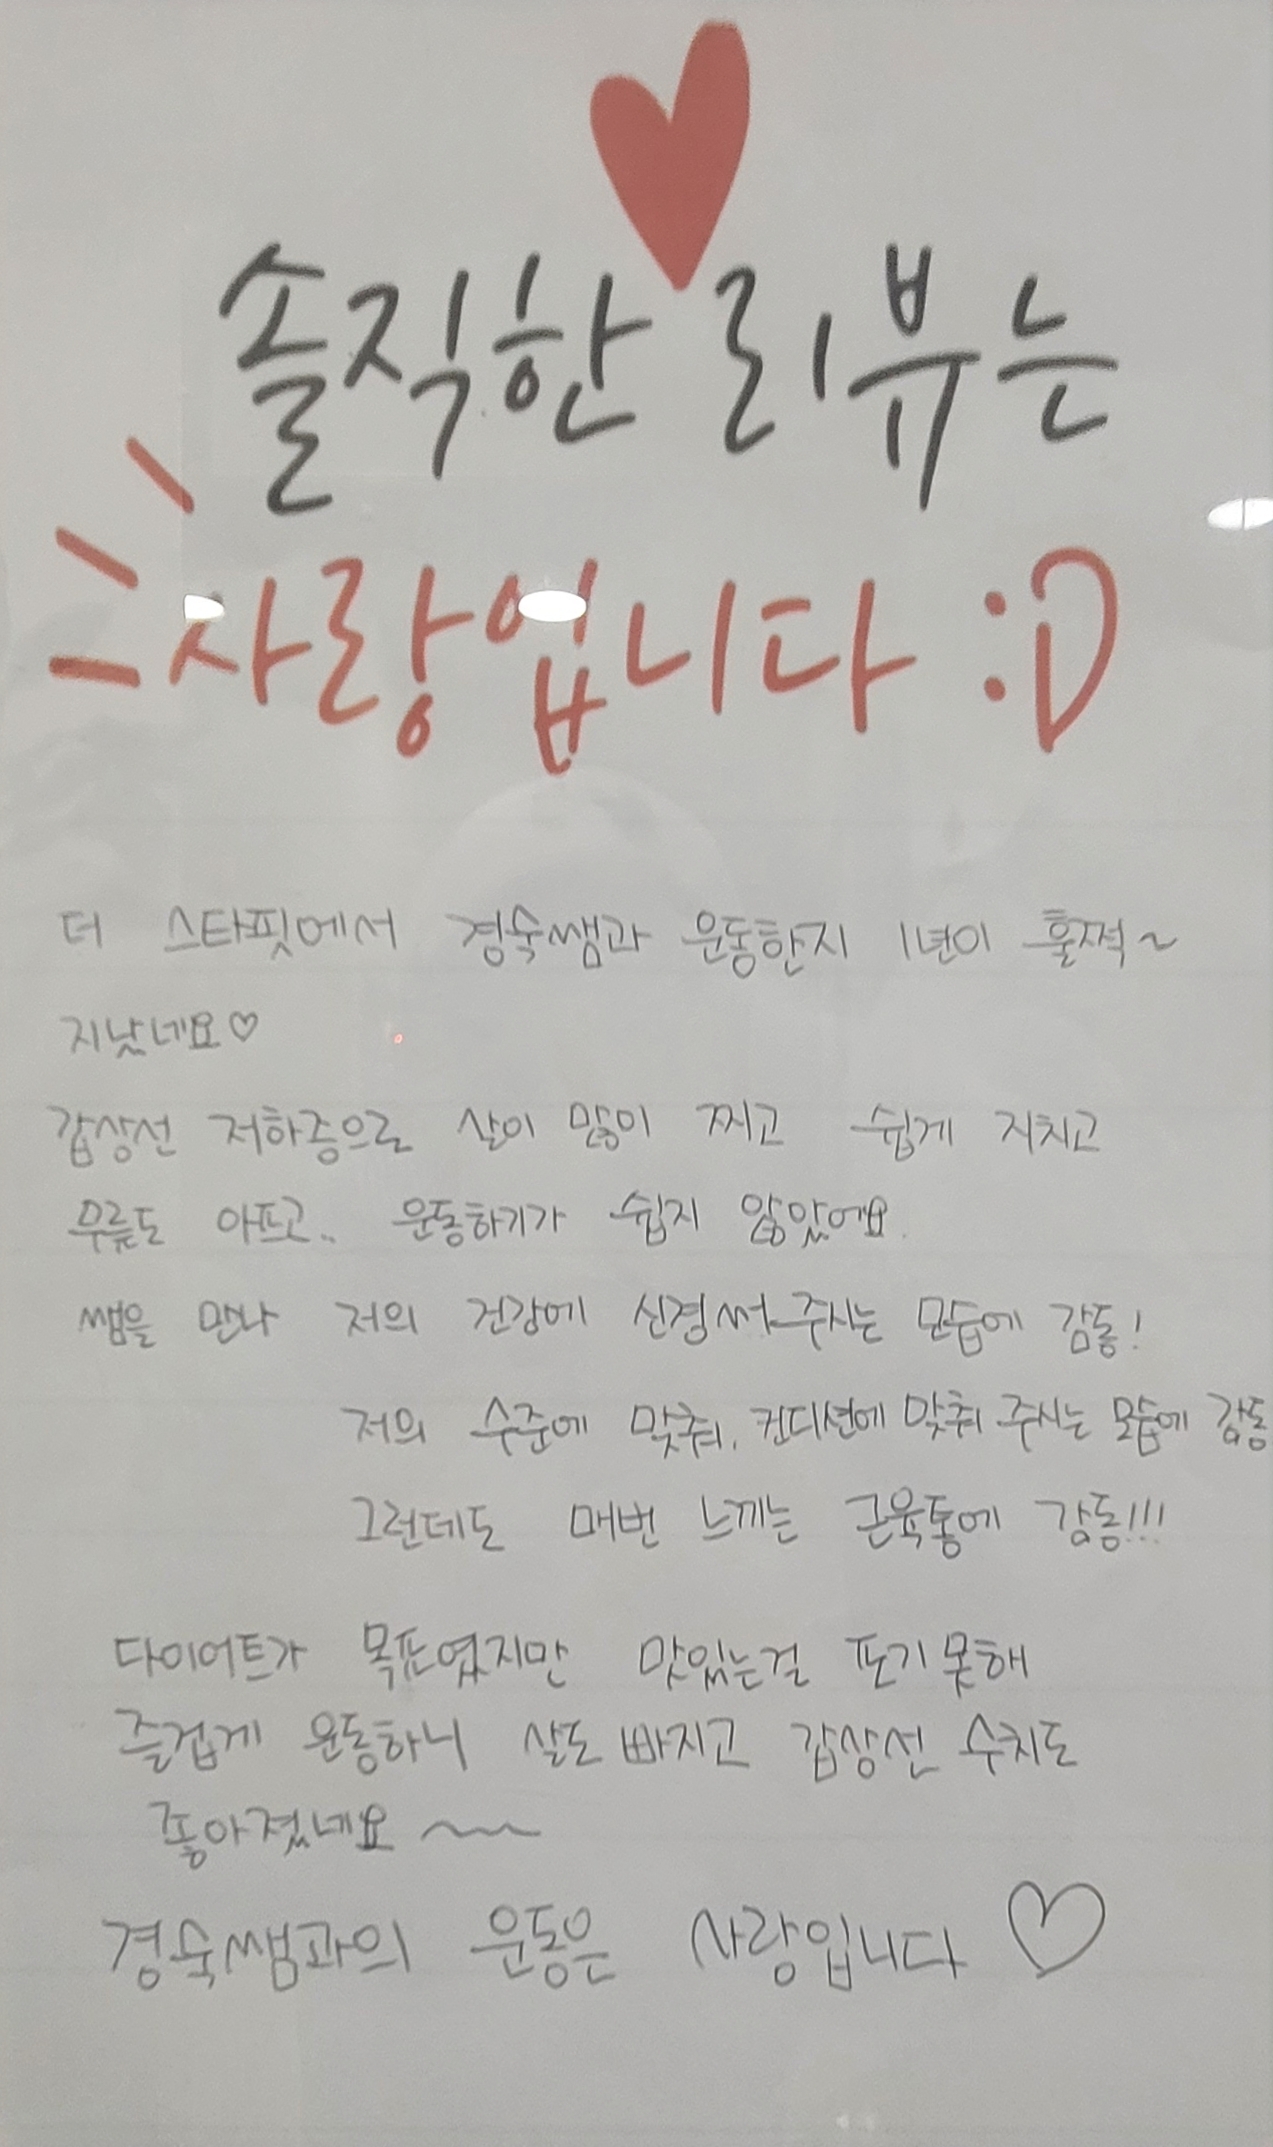 솔직한 리뷰는
사랑입니다 :D
더 스타핏에서 경숙쌤과 운동한지 1년이 훌쩍~
지났네요♡
갑상선 저하증으로 살이 많이 찌고 쉽게 지치고
무릎도 아프고.. 운동하기가 쉽지 않았에요.
쌤을 만나 저의 건강에 신경써주시는 모습에 감동!
저의 수준에 맞춰, 컨디션에 맞춰 주시는 모습에 감동
그런데도 매번 느끼는 근육통에 감동!!!
다이어트가 목표였지만 맛있는걸 포기못해
즐겁게 운동하니 살도 빠지고 갑상선 수치도
좋아졌네요~~
경숙쌤과의 운동은 사랑입니다♡